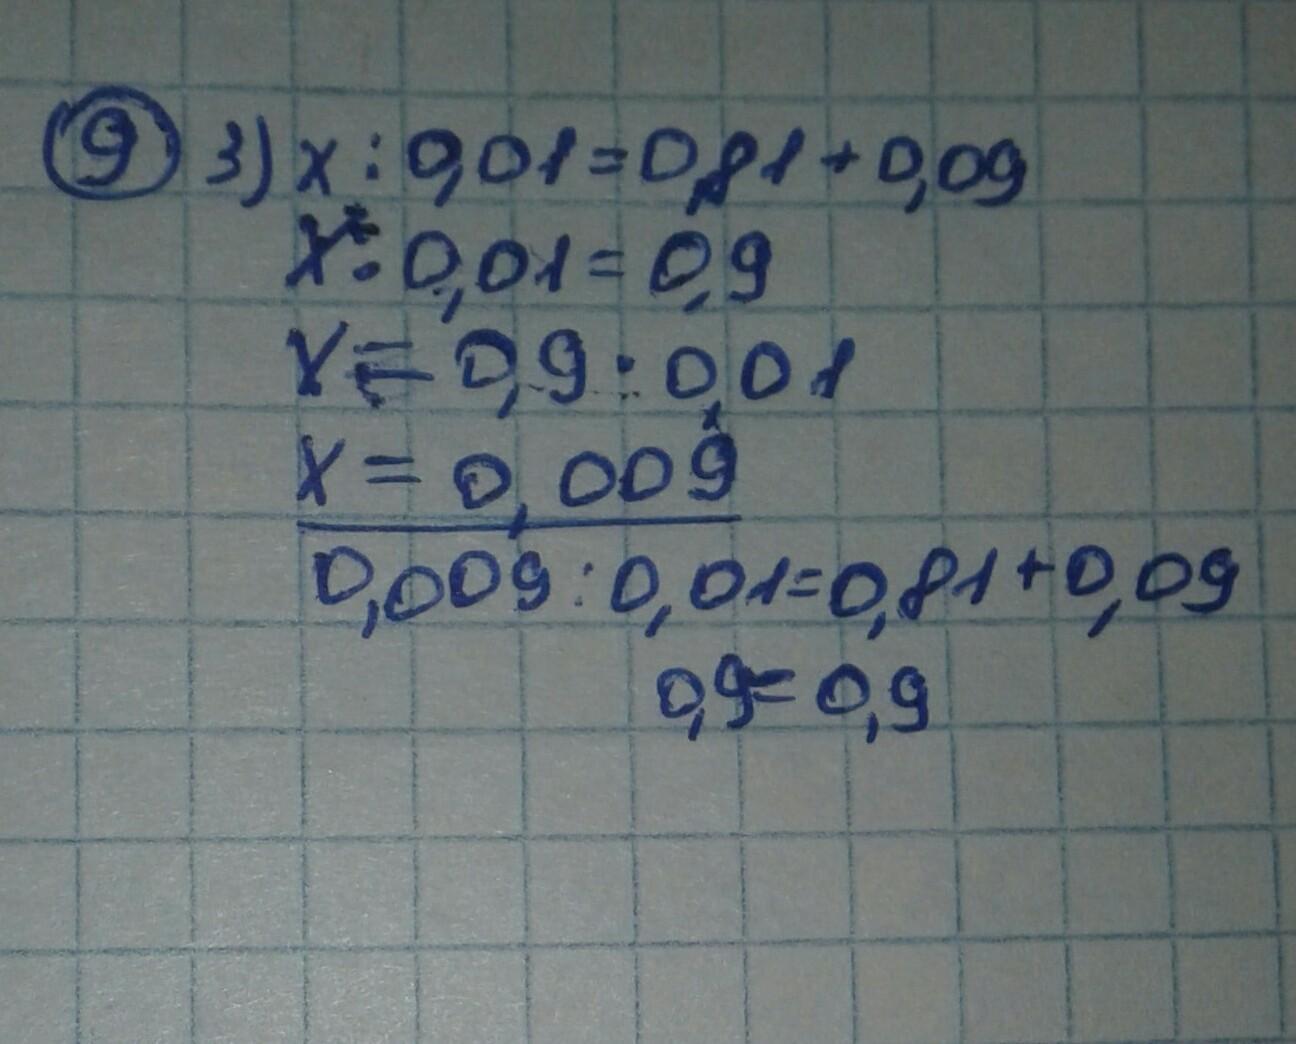 9 3) x : 0,01 = 0,81 + 0,09
x : 0,01 = 0,9
x = 0,9 · 0,01
x = 0,009
0,009 : 0,01 = 0,81 + 0,09
0,9 = 0,9